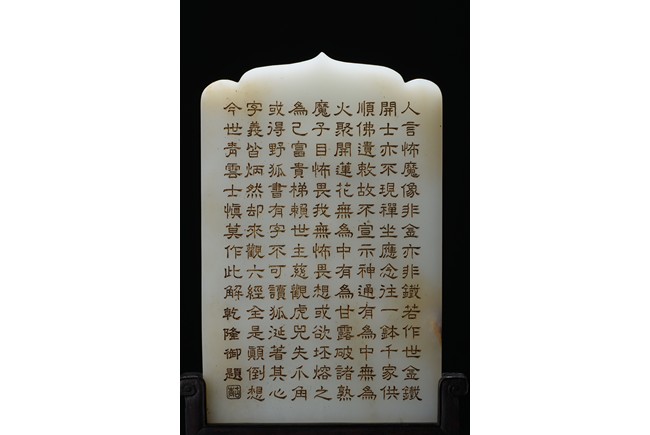 人言怖魔像非金亦非鐵若作世金鐵
開士亦不現禪坐應念往一鉢千家供
順佛遺敕故不宣示神通有為中無為
火聚開蓮花無為中有為甘露破諸熟
魔子目怖畏我無怖畏想或欲坯熔之
為己富貴梯賴世主慈觀虎兕失爪角
或得野狐書有字不可讀狐涎著其心
字義皆炳然却來觀六經全是顛倒想
今世青雲士愼莫作此解乾隆御題